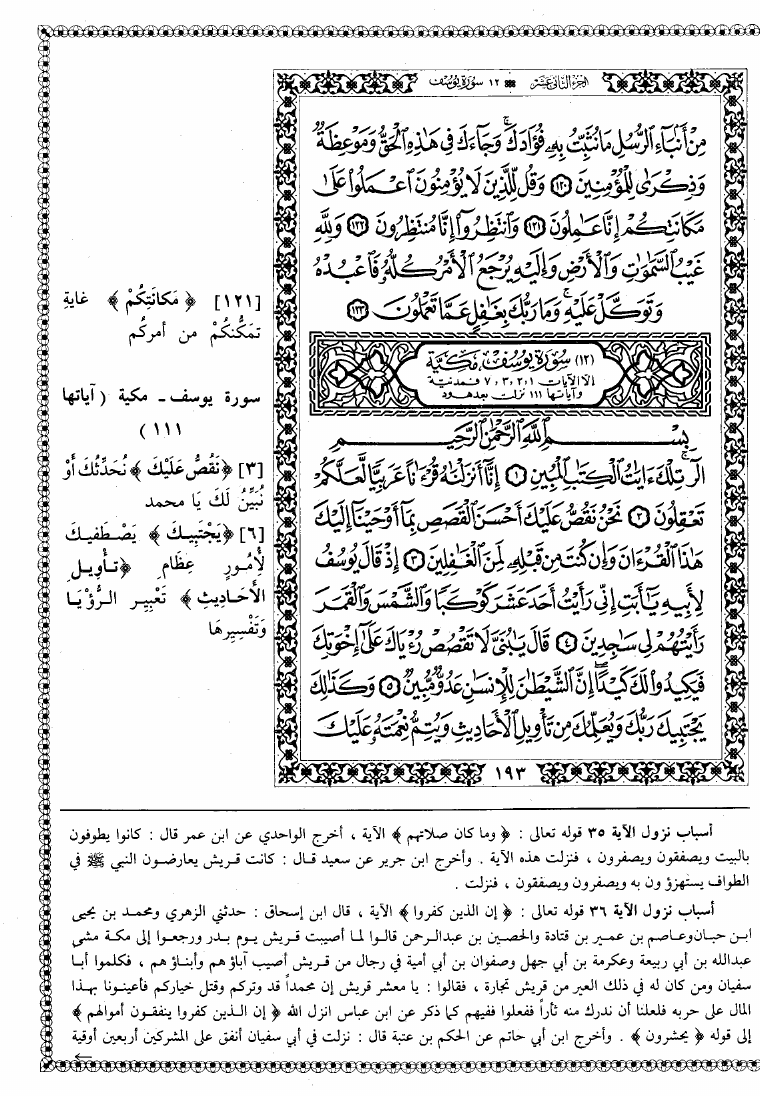 الجزء الثاني عشر ۱۲ سورة يوسف
مِنْ أَنۢبَآءِ ٱلرُّسُلِ مَا نُثَبِّتُ بِهِۦ فُؤَادَكَ ۚ وَجَآءَكَ فِى هَٰذِهِ ٱلْحَقُّ وَمَوْعِظَةٌ
وَذِكْرَىٰ لِلْمُؤْمِنِينَ ١٢٠ وَقُل لِّلَّذِينَ لَا يُؤْمِنُونَ ٱعْمَلُوا۟ عَلَىٰ
مَكَانَتِكُمْ إِنَّا عَٰمِلُونَ ١٢١ وَٱنتَظِرُوٓا۟ إِنَّا مُنتَظِرُونَ ١٢٢ وَلِلَّهِ
غَيْبُ ٱلسَّمَٰوَٰتِ وَٱلْأَرْضِ وَإِلَيْهِ يُرْجَعُ ٱلْأَمْرُ كُلُّهُۥ فَٱعْبُدْهُ
وَتَوَكَّلْ عَلَيْهِ ۚ وَمَا رَبُّكَ بِغَٰفِلٍ عَمَّا تَعْمَلُونَ ١٢٣
(١٢) سورة يوسف مكية
إلا الآيات ١ و٢ و٣ و٧ فمدنية
وآياتها ١١١ نزلت بعد هود
بِسْمِ ٱللَّهِ ٱلرَّحْمَٰنِ ٱلرَّحِيمِ
الٓر ۚ تِلْكَ ءَايَٰتُ ٱلْكِتَٰبِ ٱلْمُبِينِ ١ إِنَّآ أَنزَلْنَٰهُ قُرْءَٰنًا عَرَبِيًّا لَّعَلَّكُمْ
تَعْقِلُونَ ٢ نَحْنُ نَقُصُّ عَلَيْكَ أَحْسَنَ ٱلْقَصَصِ بِمَآ أَوْحَيْنَآ إِلَيْكَ
هَٰذَا ٱلْقُرْءَانَ وَإِن كُنتَ مِن قَبْلِهِۦ لَمِنَ ٱلْغَٰفِلِينَ ٣ إِذْ قَالَ يُوسُفُ
لِأَبِيهِ يَٰٓأَبَتِ إِنِّى رَأَيْتُ أَحَدَ عَشَرَ كَوْكَبًا وَٱلشَّمْسَ وَٱلْقَمَرَ
رَأَيْتُهُمْ لِى سَٰجِدِينَ ٤ قَالَ يَٰبُنَىَّ لَا تَقْصُصْ رُءْيَاكَ عَلَىٰٓ إِخْوَتِكَ
فَيَكِيدُوا۟ لَكَ كَيْدًا ۖ إِنَّ ٱلشَّيْطَٰنَ لِلْإِنسَٰنِ عَدُوٌّ مُّبِينٌ ٥ وَكَذَٰلِكَ
يَجْتَبِيكَ رَبُّكَ وَيُعَلِّمُكَ مِن تَأْوِيلِ ٱلْأَحَادِيثِ وَيُتِمُّ نِعْمَتَهُۥ عَلَيْكَ
١٩٣
[١٢١] ﴿ مَكانَتِكُمْ ﴾ غايةِ
تمَكُّنكُمْ من أمركُم
سورة يوسف ـ مكية ( آياتها
١١١ )
[٣] ﴿ نَقُصُّ عَلَيْكَ ﴾ نُحَدِّثُكَ أوْ
نُبيِّنُ لَكَ يَا محمد
[٦] ﴿ يَجْتَبِيكَ ﴾ يَصْطَفيكَ
لِأُمُورٍ عِظَامٍ ﴿ تأويلِ
الأحَاديثِ ﴾ تَعْبِير الرُّؤيَا
وَتَفْسِيرِهَا
أسباب نزول الآية ٣٥ قوله تعالى : ﴿ وما كان صلاتهم ﴾ الآية ، أخرج الواحدي عن ابن عمر قال : كانوا يطوفون
بالبيت ويصفقون ويصفرون ، فنزلت هذه الآية . وأخرج ابن جرير عن سعيد قال : كانت قريش يعارضون النبي ﷺ في
الطواف يستهزؤ ون به ويصفرون ويصفقون ، فنزلت .
أسباب نزول الآية ٣٦ قوله تعالى : ﴿ إن الذين كفروا ﴾ الآية ، قال ابن إسحاق : حدثني الزهري ومحمد بن يحيى
ابن حبان وعاصم بن عمير بن قتادة والحصين بن عبدالرحمن قالوا لما أصيبت قريش يوم بدر ورجعوا إلى مكة مشى
عبدالله بن أبي ربيعة وعكرمة بن أبي جهل وصفوان بن أبي أمية في رجال من قريش أصيب آباؤهم وأبناؤهم ، فكلموا أبا
سفيان ومن كان له في ذلك العير من قريش تجارة ، فقالوا : يا معشر قريش إن محمداً قد وتركم وقتل خياركم فأعينونا بهذا
المال على حربه فلعلنا أن ندرك منه ثأراً ففعلوا ففيهم كما ذكر عن ابن عباس انزل الله ﴿ إن الذين كفروا ينفقون أموالهم ﴾
إلى قوله ﴿ يحشرون ﴾ . وأخرج ابن أبي حاتم عن الحكم بن عتبة قال : نزلت في أبي سفيان أنفق على المشركين أربعين أوقية